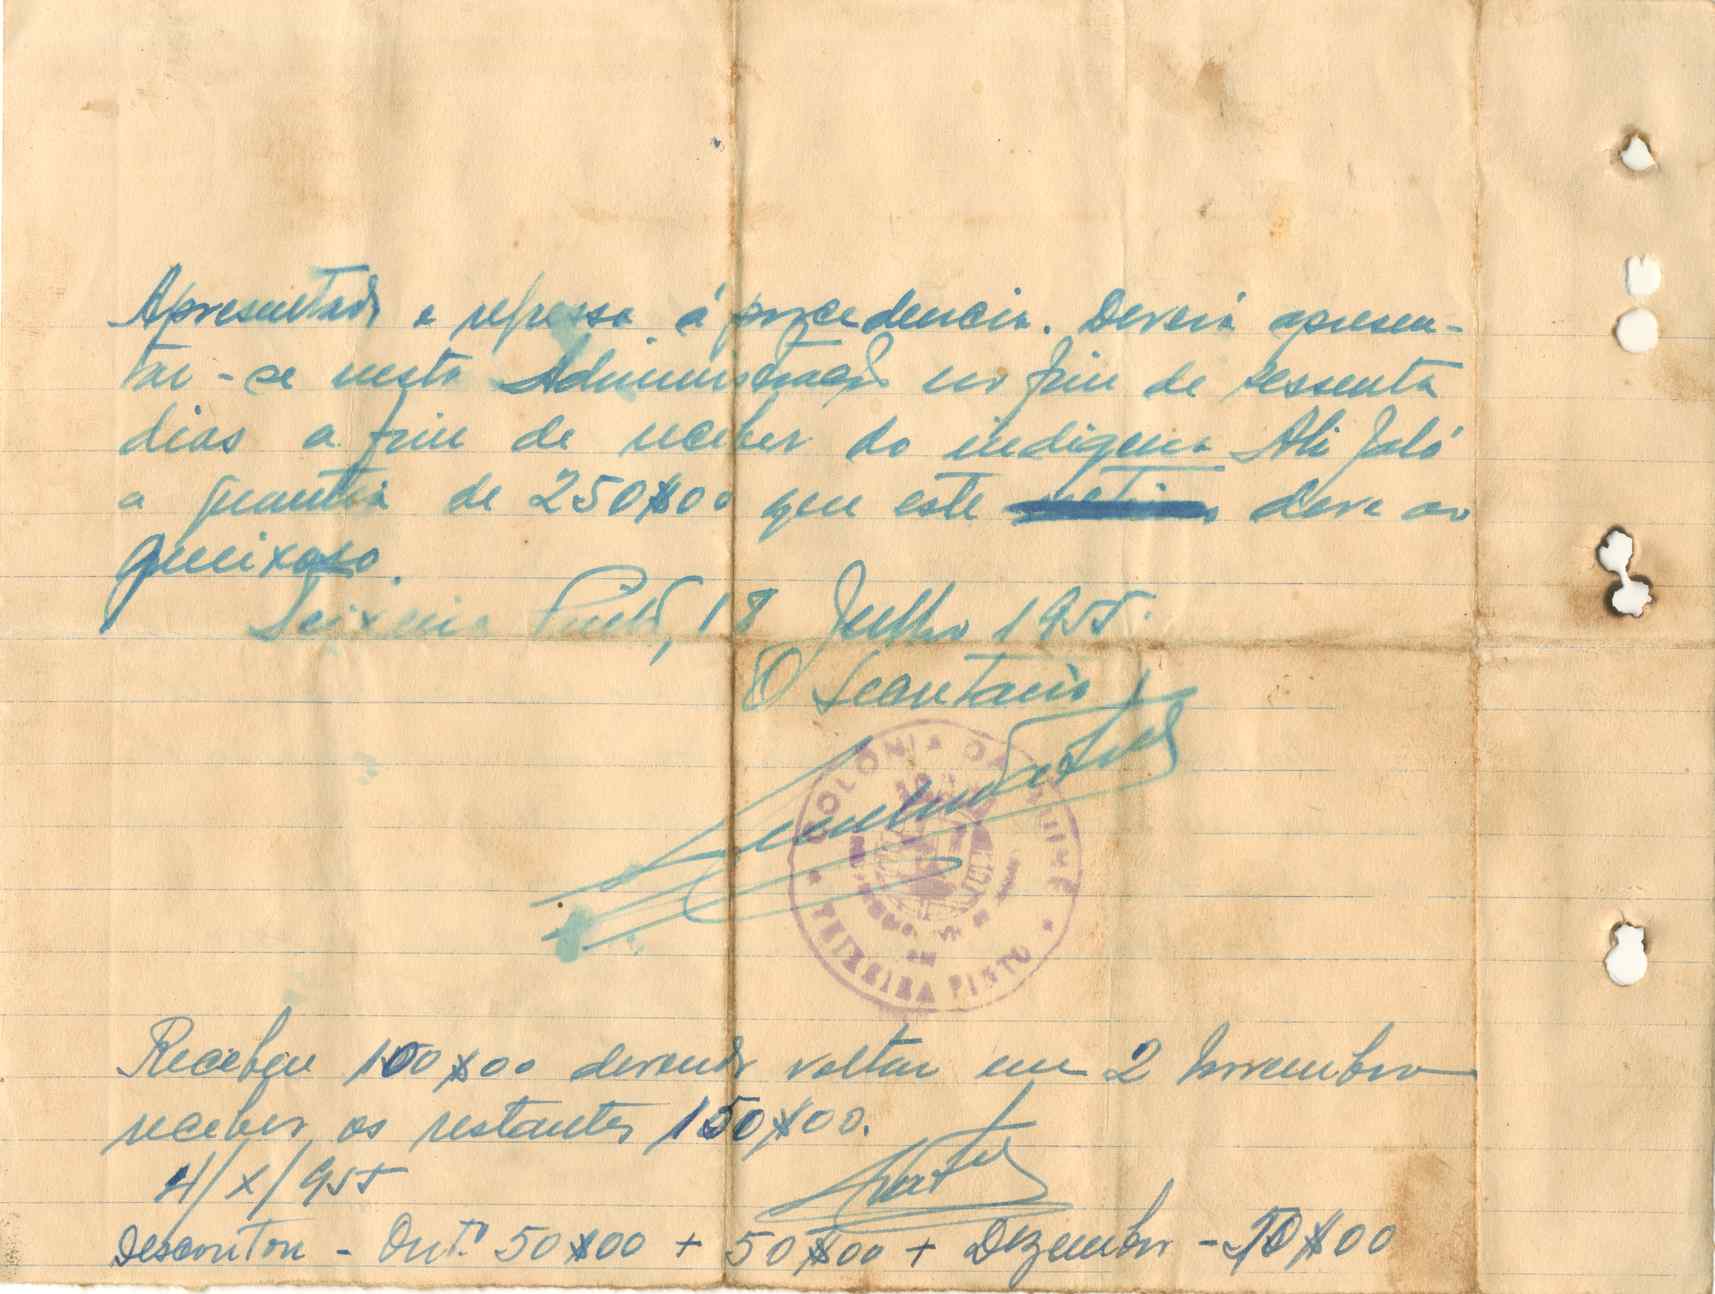 Apresentado e regressa á procedencia. Deverá apresen-
tar-se nesta Administração no fim de sessenta
dias a fim de receber do indigena Ali Jaló
a quantia de 250$00 que este deve ao
queixoso.
Teixeira Pinto, 18 Julho 1955.
O Secretario
COLÓNIA DA GUINÉ
TEIXEIRA PINTO
Recebeu 100$00 devendo voltar em 2 Novembro
receber os restantes 150$00.
4/X/955
Descontou - Out.º 50$00 + 50$00 + Dezembro - 50$00